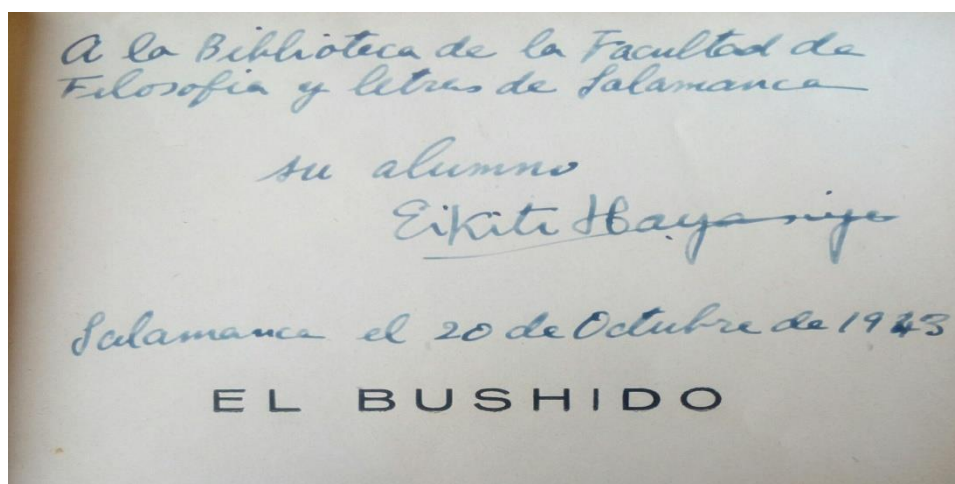 A la Biblioteca de la Facultad de
Filosofia y letras de Salamanca
su alumno
Eikiti Hayasiya
Salamanca el 20 de Octubre de 1943
EL BUSHIDO